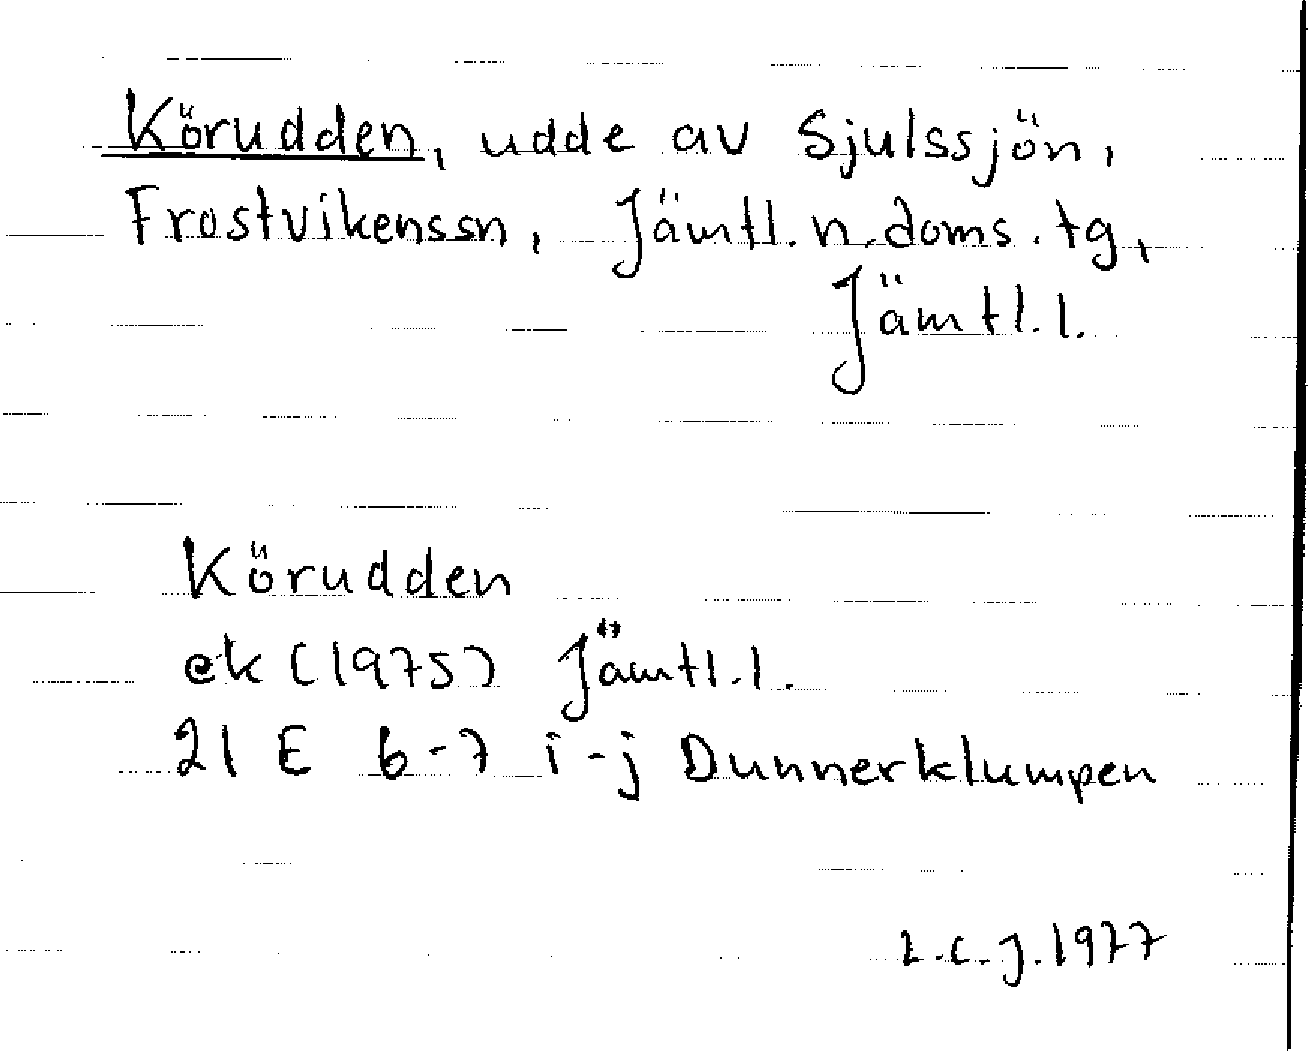 Körudden, udde av Sjulssjön,
Frostvikenssn, Jämtl. n. doms. tg,
Jämtl. l.
Körudden
ek (1975) Jämtl. l.
21 E 6-7 i-j Dunnerklumpen
L.C.J. 1977